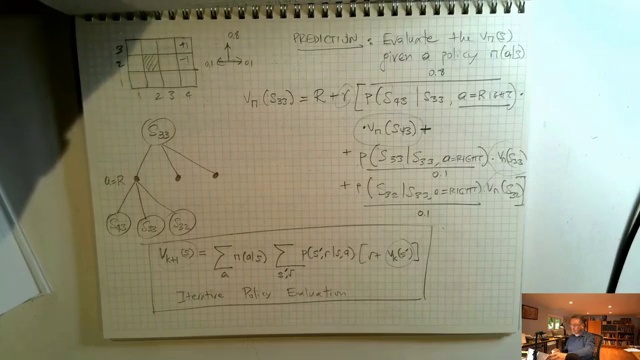 3
2
1
+1
-1
1 2 3 4
0.8
0.1 0.1
PREDICTION : Evaluate the V_π(s)
given a policy π(a|s)
0.8
V_π(S33) = R + γ [ p(S43 | S33, a=RIGHT) ·
· V_π(S43) +
+ p(S33 | S33, a=RIGHT) · V_π(S33)
0.1
+ p(S32 | S33, a=RIGHT) · V_π(S32) ]
0.1
S33
a=R
S43 S33 S32
V_{k+1}(s) = Σ_a π(a|s) Σ_{s',r} p(s',r|s,a) [ r + V_k(s') ]
Iterative Policy Evaluation